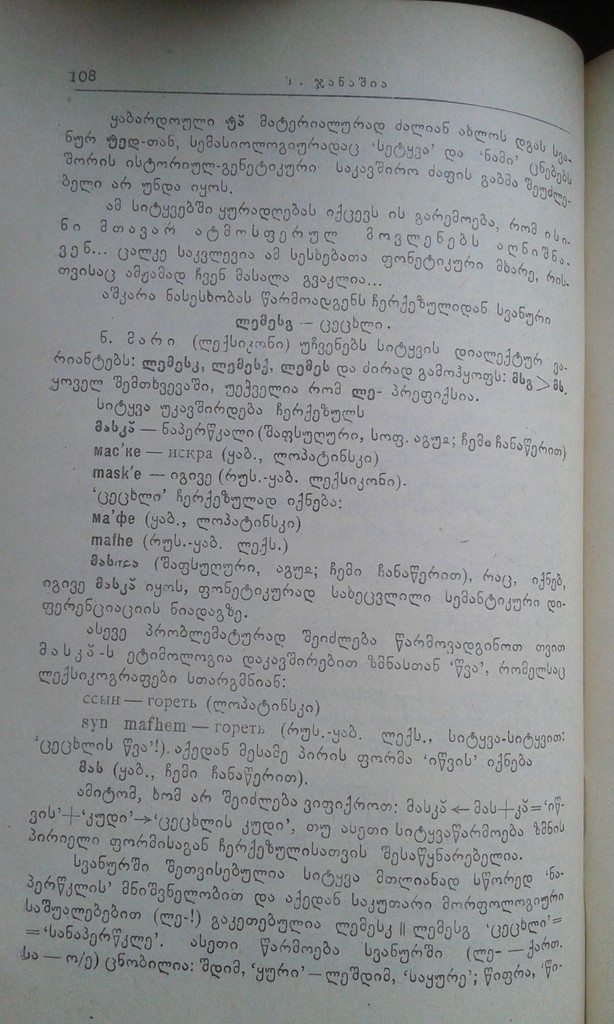 108
ს. ჯანაშია
ყაბარდოული ტჽ მატერიალურად ძალიან ახლოს დგას სვა-
ნურ ტედ-თან, სემასიოლოგიურადაც ‘სეტყვა’ და ‘ნამი’ ცნებებს
შორის ისტორიულ-გენეტიკური საკავშირო ძაფის გაბმა შეუძლე-
ბელი არ უნდა იყოს.
ამ სიტყვებში ყურადღებას იქცევს ის გარემოება, რომ ისი-
ნი მთავარ ატმოსფერულ მოვლენებს აღნიშნა-
ვენ... ცალკე საკვლევია ამ სესხებათა ფონეტიკური მხარე, რის-
თვისაც ამჟამად ჩვენ მასალა გვაკლია...
აშკარა ნასესხობას წარმოადგენს ჩერქეზულიდან სვანური
ლემესგ — ცეცხლი.
ნ. მარი (ლექსიკონი) უჩვენებს სიტყვის დიალექტურ ვა-
რიანტებს: ლემესკ, ლემესქ, ლემეს და ძირად გამოჰყოფს: მსგ > მს.
ყოველ შემთხვევაში, უეჭველია რომ ლე- პრეფიქსია.
სიტყვა უკავშირდება ჩერქეზულს
მასკა̆ — ნაპერწკალი (შაფსუღური, სოფ. აგუჲ; ჩემი ჩანაწერით)
мас’ке — искра (ყაბ., ლოპატინსკი)
mask’e — იგივე (რუს.-ყაბ. ლექსიკონი).
‘ცეცხლი’ ჩერქეზულად იქნება:
ма’фе (ყაბ., ლოპატინსკი)
mafhe (რუს.-ყაბ. ლექს.)
(შაფსუღური, აგუჲ; ჩემი ჩანაწერით), რაც, იქნებ,
იგივე მასკა̆ იყოს, ფონეტიკურად სახეცვლილი სემანტიკური დი-
ფერენციაციის ნიადაგზე.
ასევე პრობლემატურად შეიძლება წარმოვადგინოთ თვით
მასკა̆-ს ეტიმოლოგია დაკავშირებით ზმნასთან ‘წვა’, რომელსაც
ლექსიკოგრაფები სთარგმნიან:
ссын — гореть (ლოპატინსკი)
syn mafhem — гореть (რუს.-ყაბ. ლექს., სიტყვა-სიტყვით:
‘ცეცხლის წვა’!). აქედან მესამე პირის ფორმა ‘იწვის’ იქნება
მას (ყაბ., ჩემი ჩანაწერით).
ამიტომ, ხომ არ შეიძლება ვიფიქროთ: მასკა̆ ← მას+კა̆=‘იწ-
ვის’+‘კუდი’→‘ცეცხლის კუდი’, თუ ასეთი სიტყვაწარმოება ზმნის
პირიელი ფორმისაგან ჩერქეზულისათვის შესაწყნარებელია.
სვანურში შეთვისებულია სიტყვა მთლიანად სწორედ ‘ნა-
პერწკლის’ მნიშვნელობით და აქედან საკუთარი მორფოლოგიური
საშუალებებით (ლე-!) გაკეთებულია ლემესკ || ლემესგ ‘ცეცხლი’=
=‘სანაპერწკლე’. ასეთი წარმოება სვანურში (ლე- — ქართ.
სა — ო/ე) ცნობილია: შდიმ, ‘ყური’ — ლეშდიმ, ‘საყურე’; წიფრა, ‘წი-